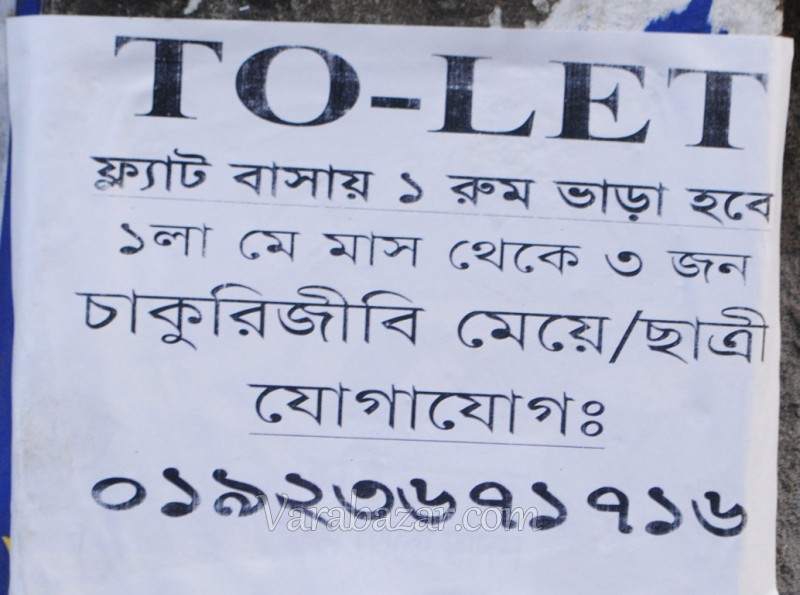 TO-LET
ফ্ল্যাট বাসায় ১ রুম ভাড়া হবে
১লা মে মাস থেকে ৩ জন
চাকুরিজীবি মেয়ে/ছাত্রী
যোগাযোগঃ
০১৯২৩৬৭১৭১৬
Varabazar.com